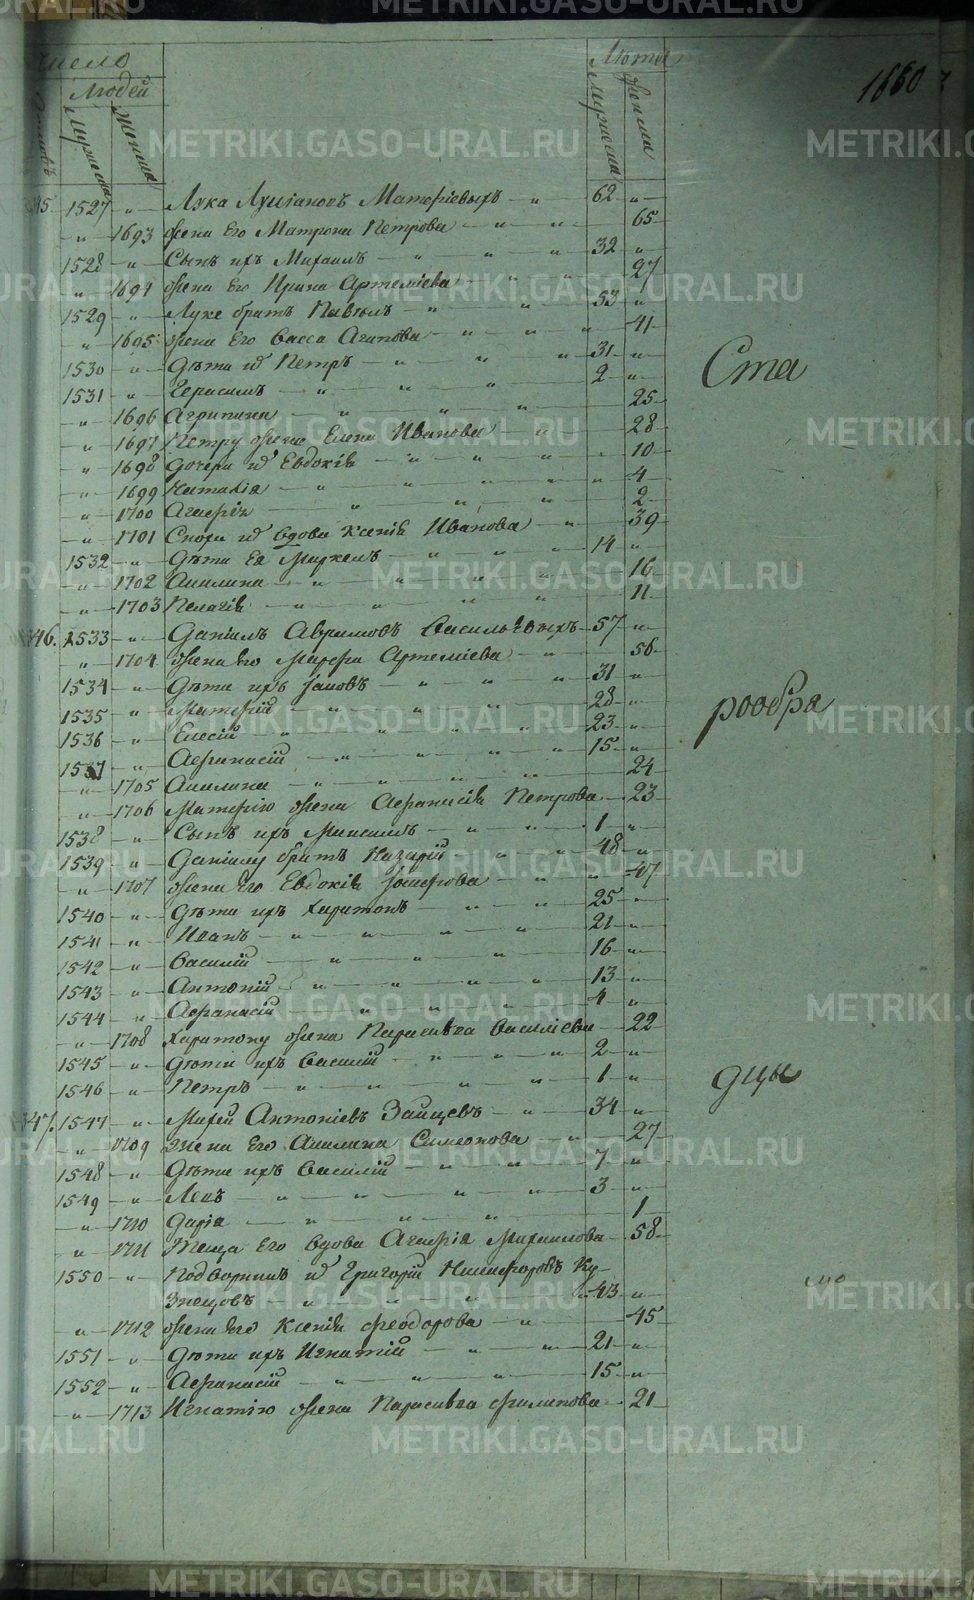 число
Людей
Лѣта
1660
Мужеска
Женска
мужеска
женска
1527 " Лука Лукіановъ " 62 "
" 1693 жена Его Матрона Петрова " " 65
1528 " Сынъ ихъ Михаилъ " " " 32 "
" 1694 жена Его Ирина Артеміева " " 27
1529 " Луке братъ Павелъ " " 53 "
" 1695 жена Его Васса Агапова " " " 41
1530 " Дѣти их Петръ " " " 31 "
1531 " Герасимъ " " " 2 "
" 1696 Агрипина " " " 25
" 1697 Петру жена Елена Иванова " 28
" 1698 Дочери их Евдокія " " " " 10
" 1699 Наталія " " " " " 4
" 1700 " " " 2
" 1701 Сноха их вдова Ксенія Иванова " 39
1532 " Дѣти Ея Маркелъ " " " 14 "
" 1702 Акилина " " " " 16
" 1703 Пелагія " " " " 11
346. 1533 " Даніилъ Аврамовъ Васильевыхъ 57 "
" 1704 жена Его Марфа Артеміева " 56
1534 " Дѣти ихъ Іаковъ " " " 31 "
1535 " Матфей " " " " 28 "
1536 " Елесій " " " " 23 "
1537 " Афанасій " " " " 15 "
" 1705 Акилина " " " " 24
" 1706 Матфею жена Афанасія Петрова 23
1538 " Сынъ ихъ Максимъ " " " 1 "
1539 " Даніилу братъ Назарій " " 48 "
" 1707 жена Его Евдокія " " 47
1540 " Дѣти ихъ Харитонъ " " 25 "
1541 " Иванъ " " " " 21 "
1542 " Василій " " " 16 "
1543 " Антоній " " " " 13 "
1544 " Афанасій " " " " 4 "
" 1708 Харитону жена Параскева Василіева 22
1545 " Дѣти ихъ Василій " " " 2 "
1546 " Петръ " " " " 1 "
347. 1547 " Антоніевъ Зайцевъ " 34 "
" 1709 жена Его Акилина Симеонова " 27
1548 " Дѣти ихъ Василій " " 7 "
1549 " Левъ " " " " 3 "
" 1710 Дарія " " " 1
" 1711 Теща Его вдова Агафія Михаилова 58
1550 " Подворникъ их Григорій Никифоровъ Ку-
знецовъ " " " " 43 "
" 1712 жена Его Ксенія Феодорова " 45
1551 " Дѣти ихъ Игнатій " " 21 "
1552 " Афанасій " " " 15 "
" 1713 Игнатію жена Параскева Филипова 21
Ста
рообря
дцы
METRIKI.GASO-URAL.RU